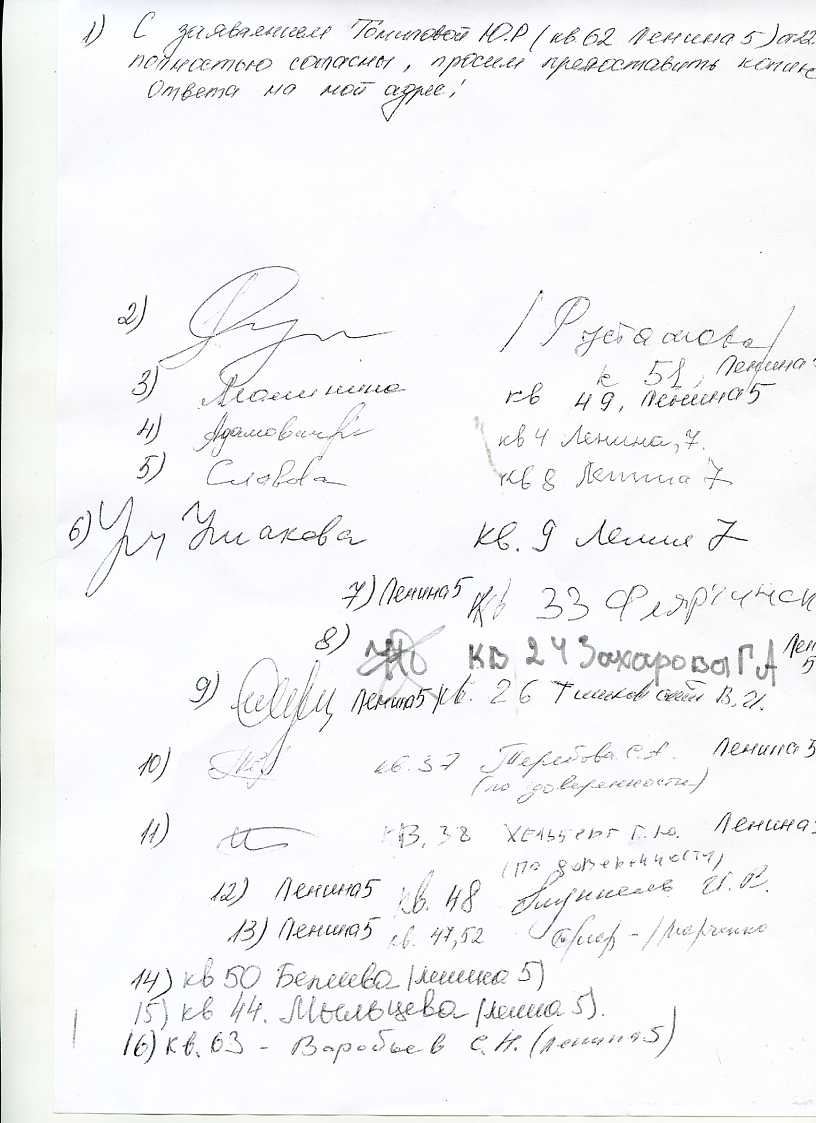 1) С заявлением Томиловой Ю.Р (кв.62 Ленина 5) от 22.
полностью согласны, просим предоставить копию
Ответа на мой адрес!
2) / Рустамова /
к 51, Ленина
3) Маминина кв 49, Ленина 5
4) кв 4 Ленина, 7.
5) Словова кв 8 Ленина 7
6) Ушакова кв. 9 Ленина 7
7) Ленина 5 кв 33
8) кв 24 Захарова Г.А Лен
5
9) Ленина 5 кв. 26 В.И.
10) кв. 37 Теребова С.А. Ленина 5
(по доверенности)
11) кв. 38 Г.Ю. Ленина
(по доверенности)
12) Ленина 5 кв. 48 И.В.
13) Ленина 5 кв. 47,52 / Марченко
14) кв 50 (Ленина 5)
15) кв 44. Мыльцева (Ленина 5).
16) кв. 63 - Воробьев С.Н. (Ленина 5)